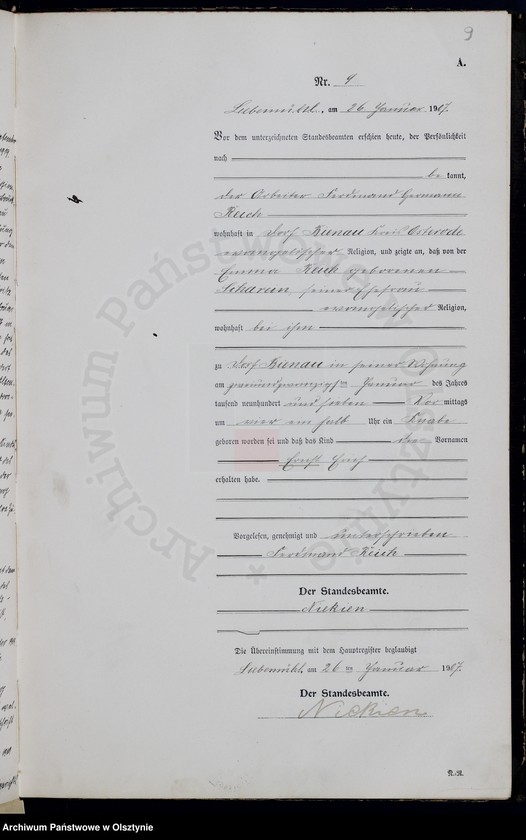 9
A.
Nr. 9
Liebemühl, am 26 Januar 1907.
Vor dem unterzeichneten Standesbeamten erschien heute, der Persönlichkeit
nach
be kannt,
der Arbeiter Ferdinand Hermann
Reich
wohnhaft in Dorf Bienau Kreis Osterode
evangelischer Religion, und zeigte an, daß von der
Emma Reich geborenen
seiner Ehefrau
evangelischer Religion,
wohnhaft bei ihm
zu Dorf Bienau in seiner Wohnung
am zweiundzwanzigsten Januar des Jahres
tausend neunhundert und sieben Vor mittags
um vier ein halb Uhr ein Knabe
geboren worden sei und daß das Kind den Vornamen
Ernst
erhalten habe.
Vorgelesen, genehmigt und unterschrieben
Ferdinand Reich
Der Standesbeamte.
Niekien
Die Übereinstimmung mit dem Hauptregister beglaubigt
Liebemühl, am 26 ten Januar 1907.
Der Standesbeamte.
Niekien
N.-R.
Archiwum Państwowe w Olsztynie
Archiwum Państwowe w Olsztynie